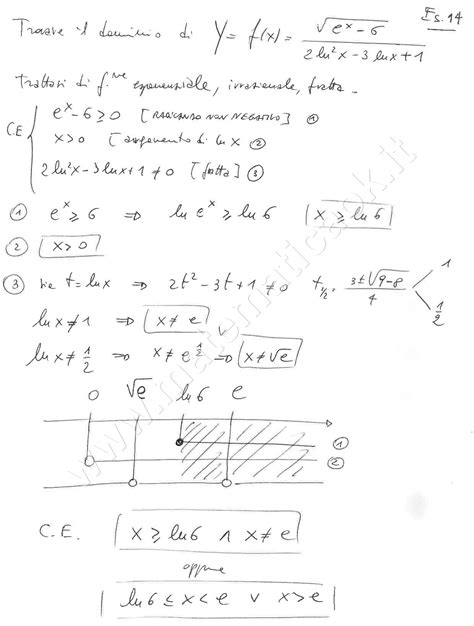 Es. 14
Trovare il dominio di y = f(x) = √(e^x - 6) / (2ln²x - 3lnx + 1)
Trattasi di f.ne esponenziale, irrazionale, fratta.
C.E. { e^x - 6 ≥ 0 [RADICANDO NON NEGATIVO] ①
x > 0 [argomento di ln x] ②
2ln²x - 3lnx + 1 ≠ 0 [fratta] ③
① e^x ≥ 6 ⇒ ln e^x ≥ ln 6 x ≥ ln 6
② x > 0
③ t = lnx ⇒ 2t² - 3t + 1 ≠ 0 t½ = (3 ± √(9-8)) / 4 1
1/2
lnx ≠ 1 ⇒ x ≠ e v
lnx ≠ 1/2 ⇒ x ≠ e^(1/2) ⇒ x ≠ √e
0 √e ln 6 e
①
②
C.E. x ≥ ln 6 ∧ x ≠ e
oppure
ln 6 ≤ x < e ∨ x > e
www.matematicaok.it